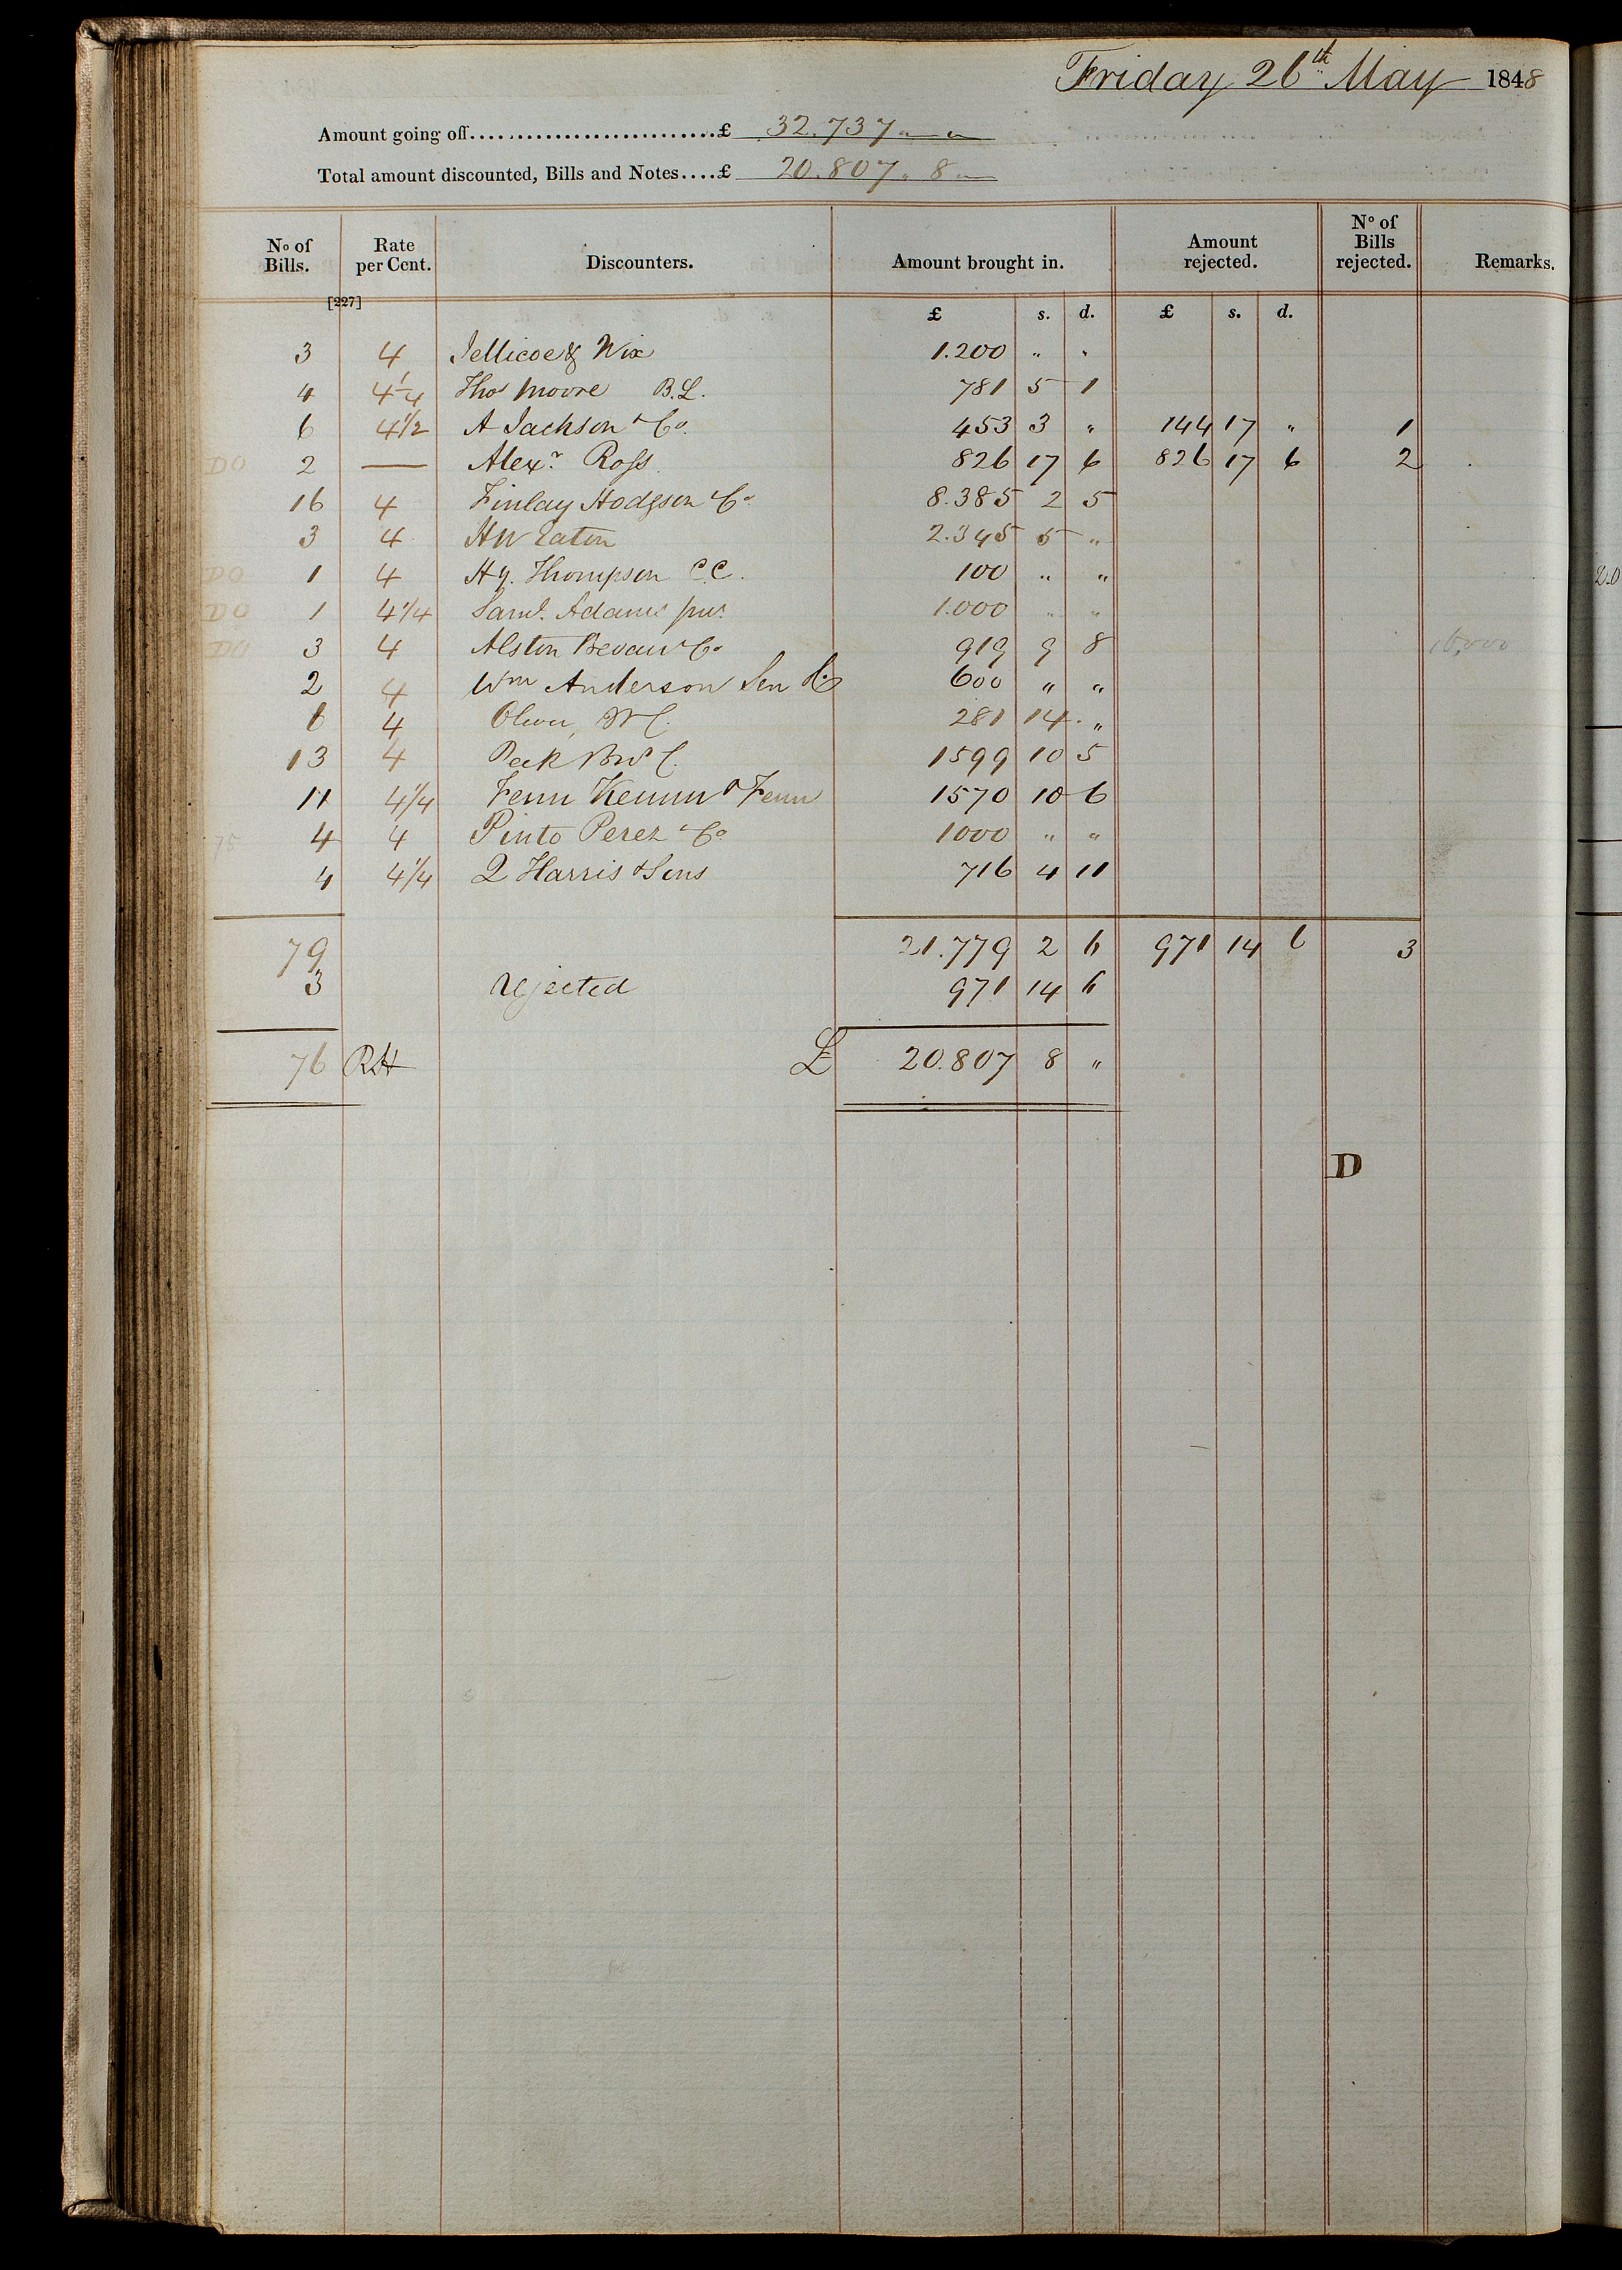 Friday 26th May 1848
Amount going off........................£ 32.737 " "
Total amount discounted, Bills and Notes....£ 20.807 " 8 "
No of Bills. Rate per Cent. Discounters. Amount brought in. Amount rejected. No of Bills rejected. Remarks.
[227]
£ s. d. £ s. d.
3 4 Jellicoe & Wix 1.200 " "
4 4 1/4 Thos Moore B.L. 781 5 1
6 4 1/2 A Jackson & Co. 453 3 " 144 17 " 1
DO 2 — Alexr. Ross 826 17 6 826 17 6 2
16 4 Finlay Hodgson & Co. 8.385 2 5
3 4 HW Eaton 2.345 5 "
DO 1 4 Hy. Thompson C.C. 100 " "
DO 1 4 1/4 Saml. Adams junr. 1.000 " "
DO 3 4 Alston Bevan & Co 919 9 8
16,000
2 4 Wm Anderson Sen & Co 600 " "
6 4 281 14 "
13 4 Peek Bros C. 1599 10 5
11 4 1/4 Fenn & Fenn 1570 10 6
75 4 4 Pinto Perez & Co. 1000 " "
4 4 1/4 Q Harris & Sons 716 4 11
79 21.779 2 6 971 14 6 3
3 rejected 971 14 6
76 RH £ 20.807 8 "
D